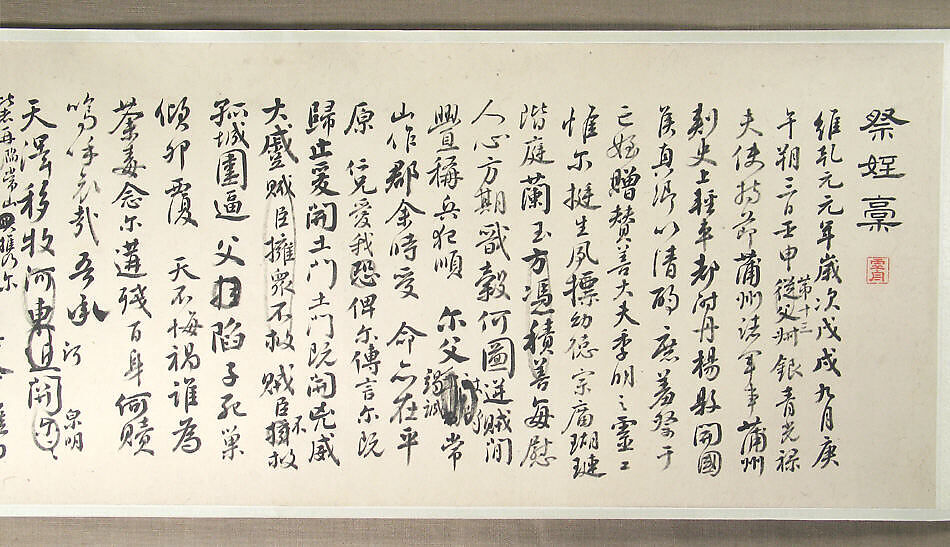 祭姪稾
維乾元元年歲次戊戌九月庚
午朔三日壬申第十三從父銀青光祿
夫使持節蒲州諸軍事蒲州
刺史上輕車都尉丹楊縣開國
侯真卿以清酌庶羞祭于
亡姪贈贊善大夫季明之靈曰
惟尔挺生夙標幼德宗廟瑚璉
階庭蘭玉方憑積善每慰
人心方期戩穀何圖逆賊閒
舋稱兵犯順尔父竭誠常
山作郡余時受命亦在平
原仁兄愛我恐俾尔傳言尔既
歸止爰開土門土門既開凶威
大蹙賊臣擁衆不救賊臣不擁救
孤城圍逼父陷子死巢
傾卵覆天不悔禍誰為
荼毒念尔遘殘百身何贖
嗚呼哀哉吾承河泉明
天澤移牧河東近
再陷常山携尔